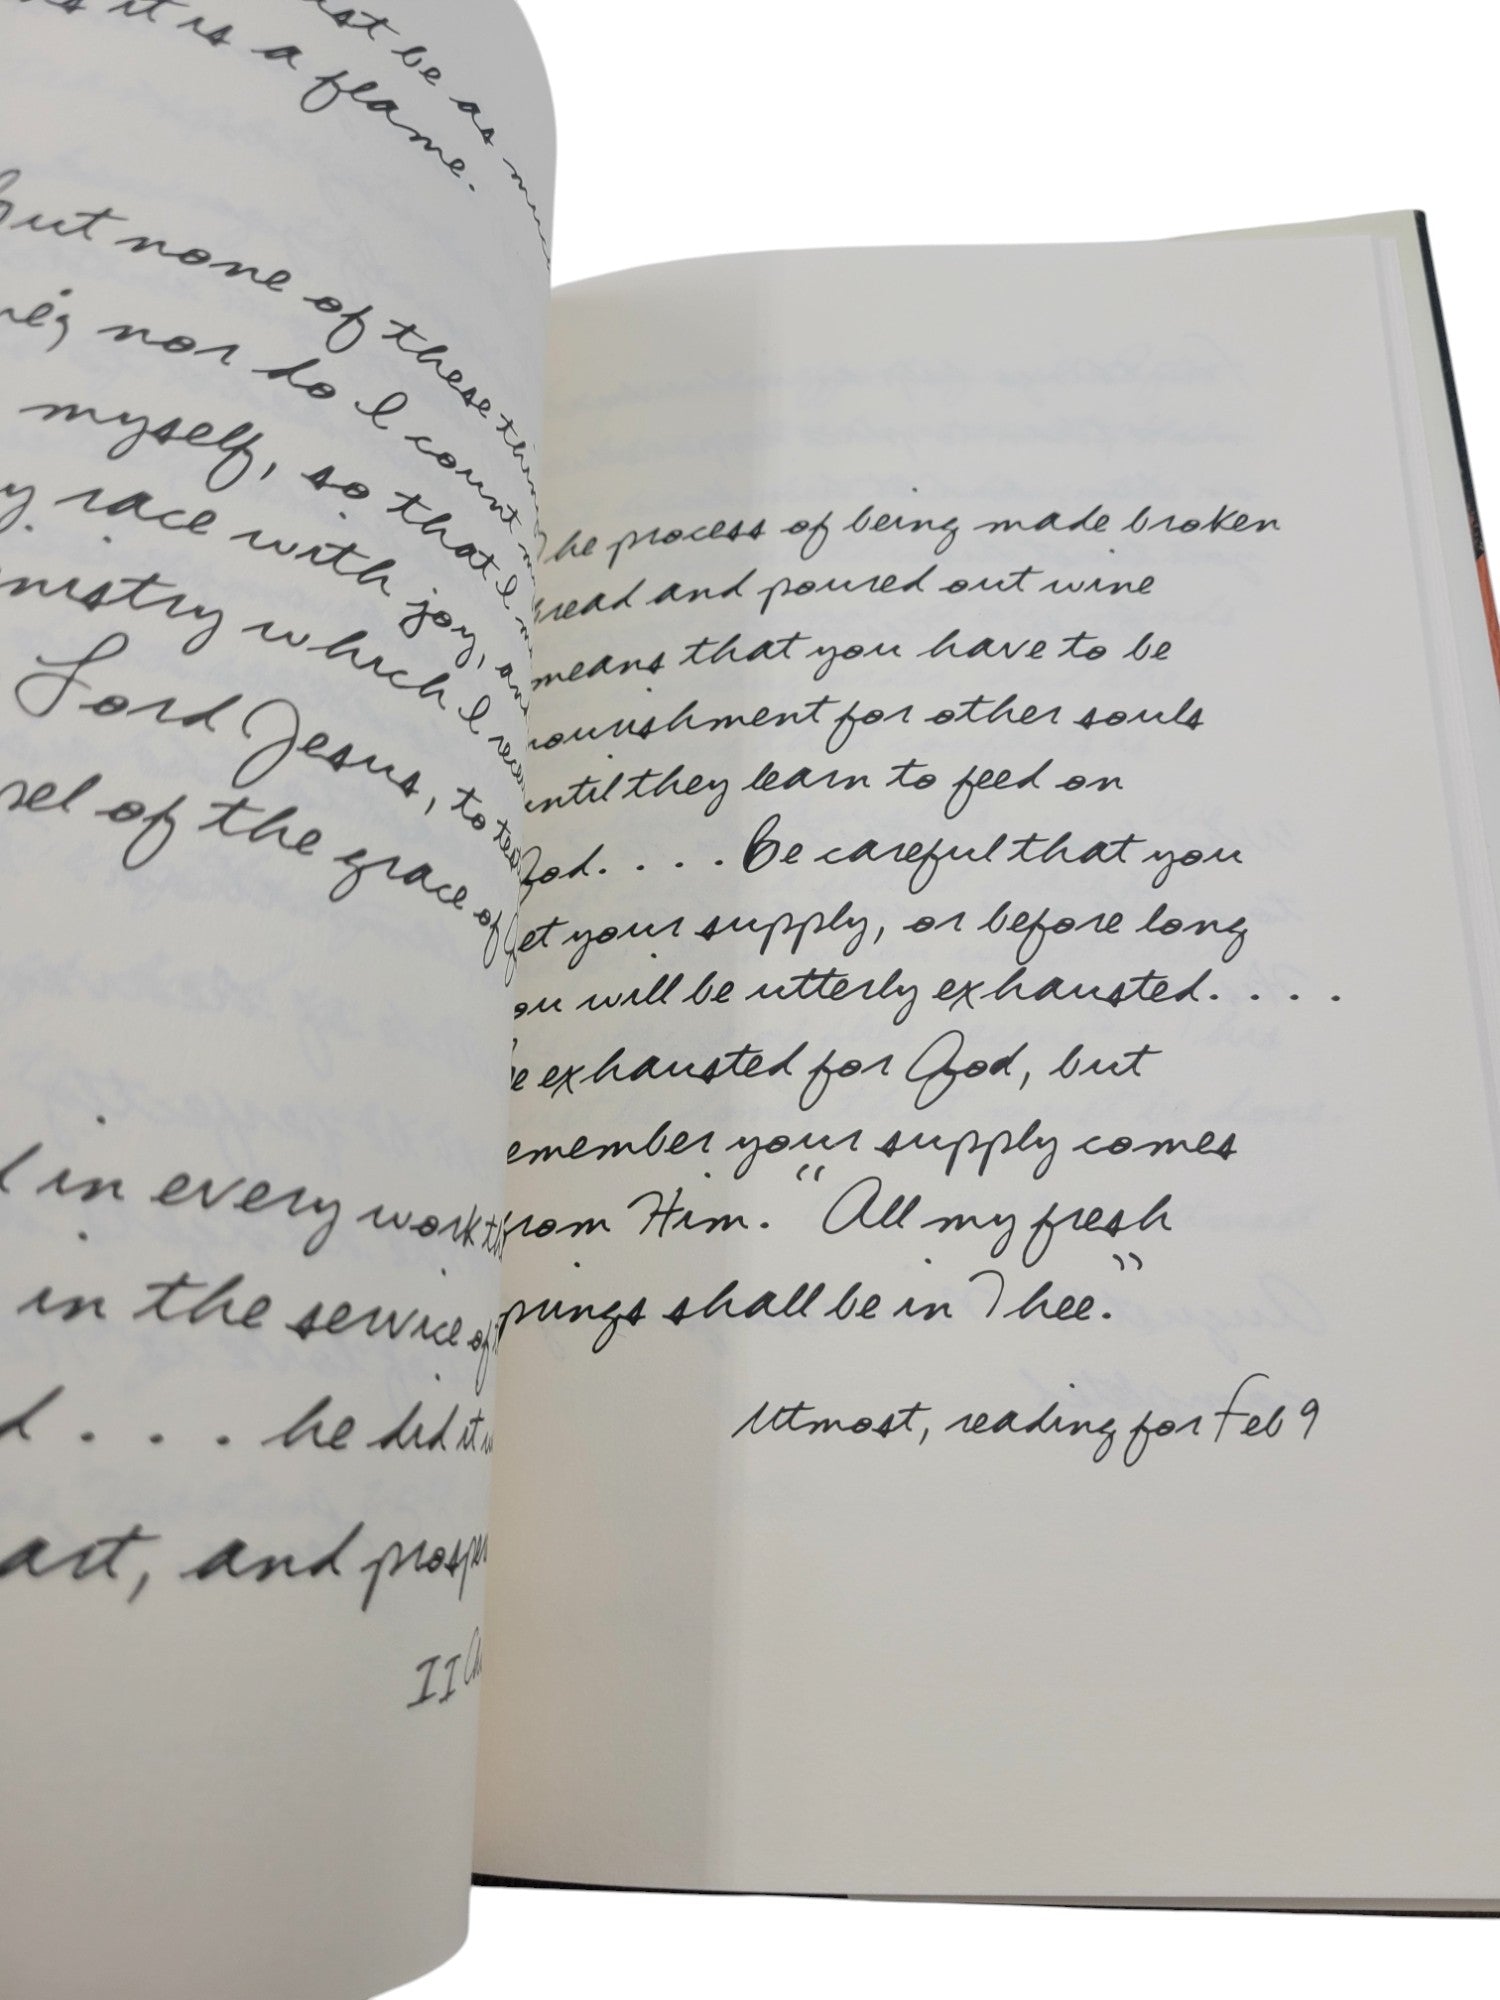 as it is a flame.
but none of these
nor do I count
myself, so that I
race with joy,
which I
Lord Jesus, to
of the grace of
in every work
in the service of
. . . he did it
and
II
The process of being made broken
bread and poured out wine
means that you have to be
nourishment for other souls
until they learn to feed on
God. . . . Be careful that you
get your supply, or before long
you will be utterly exhausted. . . .
Be exhausted for God, but
remember your supply comes
from Him. "All my fresh
springs shall be in Thee."
Utmost, reading for Feb 9